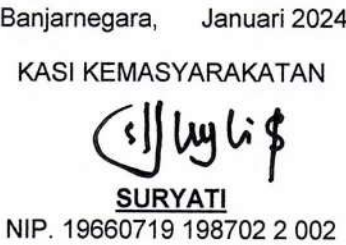 Banjarnegara, Januari 2024
KASI KEMASYARAKATAN
SURYATI
NIP. 19660719 198702 2 002